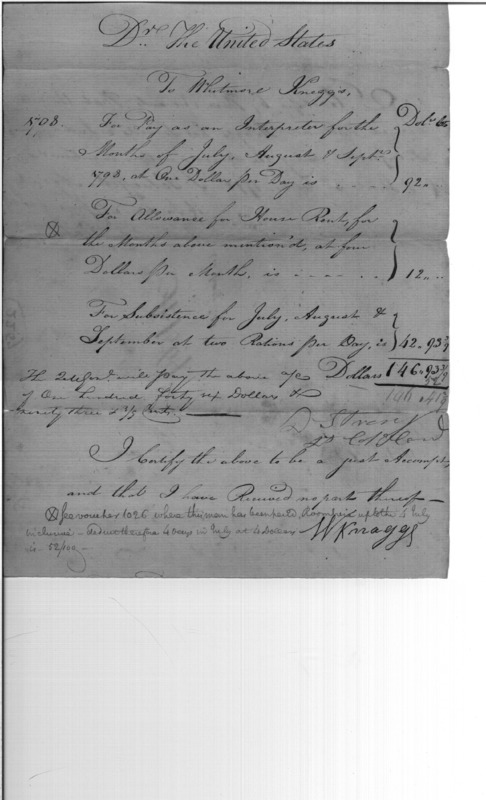 Dr. The United States
To Whitmore Knaggs,
1798. For Pay as an Interpreter for the Dolrs Cts
Months of July, August & Septr.
1798, at One Dollar per Day is . . . . 92 . .
For Allowance for House Rent, for
the Months above mention'd, at four
Dollars per Month, is . . . . . 12 . .
For Subsistence for July, August &
September at two Rations per Day, is 42.93 1/3
The will pay the above a/c Dollars 146.93 1/3
of One hundred forty six Dollars & 52
ninety three & 1/3 Cents 146.41 1/3
D Strong
Lt Col Comd
I Certify the above to be a just Accompt,
and that I have Received no part thereof —
See voucher 1026 where this man has been paid, Room up to the 4 July
inclusive - deduct therefore 4 Days in July at 4 Dollars
is - 52/100 -
W Knaggs